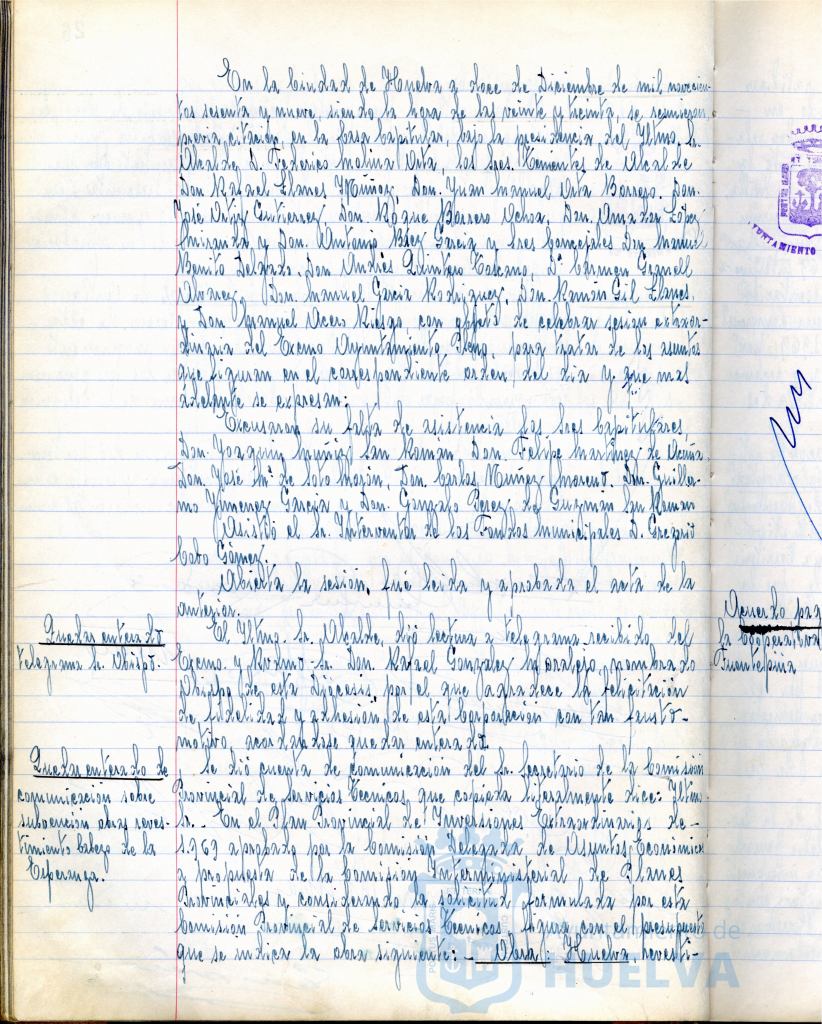 En la Ciudad de Huelva a doce de Diciembre de mil novecien-
tos sesenta y nueve, siendo la hora de las veinte y treinta, se reunieron,
previa citación, en la Casa Capitular, bajo la presidencia del Iltmo. Sr.
Alcalde D. Federico Molina Orta, los Sres. Tenientes de Alcalde
Don Rafael Llanes Muñoz, Don Juan Manuel Orta Borrero, Don
José Ortiz Gutierrez, Don Roque Barrero Ochoa, Don Amador López
Miranda y Don Antonio Báez Garcia y Sres Concejales Don Manuel
Benito Delgado, Don Andrés Quintero Toscano, Dª Carmen
Alvarez, Don Manuel Garcia Rodriguez, Don Ramón Gil Llanes
y Don Manuel, con objeto de celebrar sesión extraor-
dinaria del Excmo Ayuntamiento Pleno, para tratar de los asuntos
que figuran en el correspondiente orden del dia y que mas
adelante se expresan:
Excusaron su falta de asistencia los Sres Capitulares
Don Joaquin Muñiz San Román, Don Felipe Martinez de Acuña,
Don José Mª de Soto, Don Carlos Nuñez Moreno, Don Guiller-
mo Jimenez Garcia y Don Gonzalo Perez de Guzman San Roman
Asistió el Sr. Interventor de los Fondos Municipales D. Gregorio
Cobo Gómez.
Abierta la sesión, fué leida y aprobada el acta de la
anterior.
Quedar enterado
telegrama Sr. Obispo.
El Iltmo. Sr. Alcalde, dió lectura a telegrama recibido del
Excmo. y Rvdmo Sr. Don Rafael Gonzalez Moralejo, nombrado
Obispo de esta Diócesis, por el que agradece la felicitación
de fidelidad y adhesión de esta Corporación con tan fausto
motivo, acordandose quedar enterado.
Quedar enterado de
comunicación sobre
subvención obras reves-
timiento Cabezo de la
Esperanza.
Se dió cuenta de comunicación del Sr. Secretario de la Comisión
Provincial de Servicios Tecnicos, que copiada literalmente dice: Iltmo.
Sr. - En el Plan Provincial de Inversiones Extraordinarias de
1.969 aprobado por la Comisión Delegada de Asuntos Económicos
a propuesta de la Comisión Interministerial de Planes
Provinciales y considerando la solicitud formulada por esta
Comisión Provincial de Servicios Tecnicos, figura con el presupuesto
que se indica la obra siguiente: - Obra: Huelva, revesti-
Acuerdo para
la Cooperativa
Fuentepiña
AYUNTAMIENTO
Ayuntamiento de
HUELVA